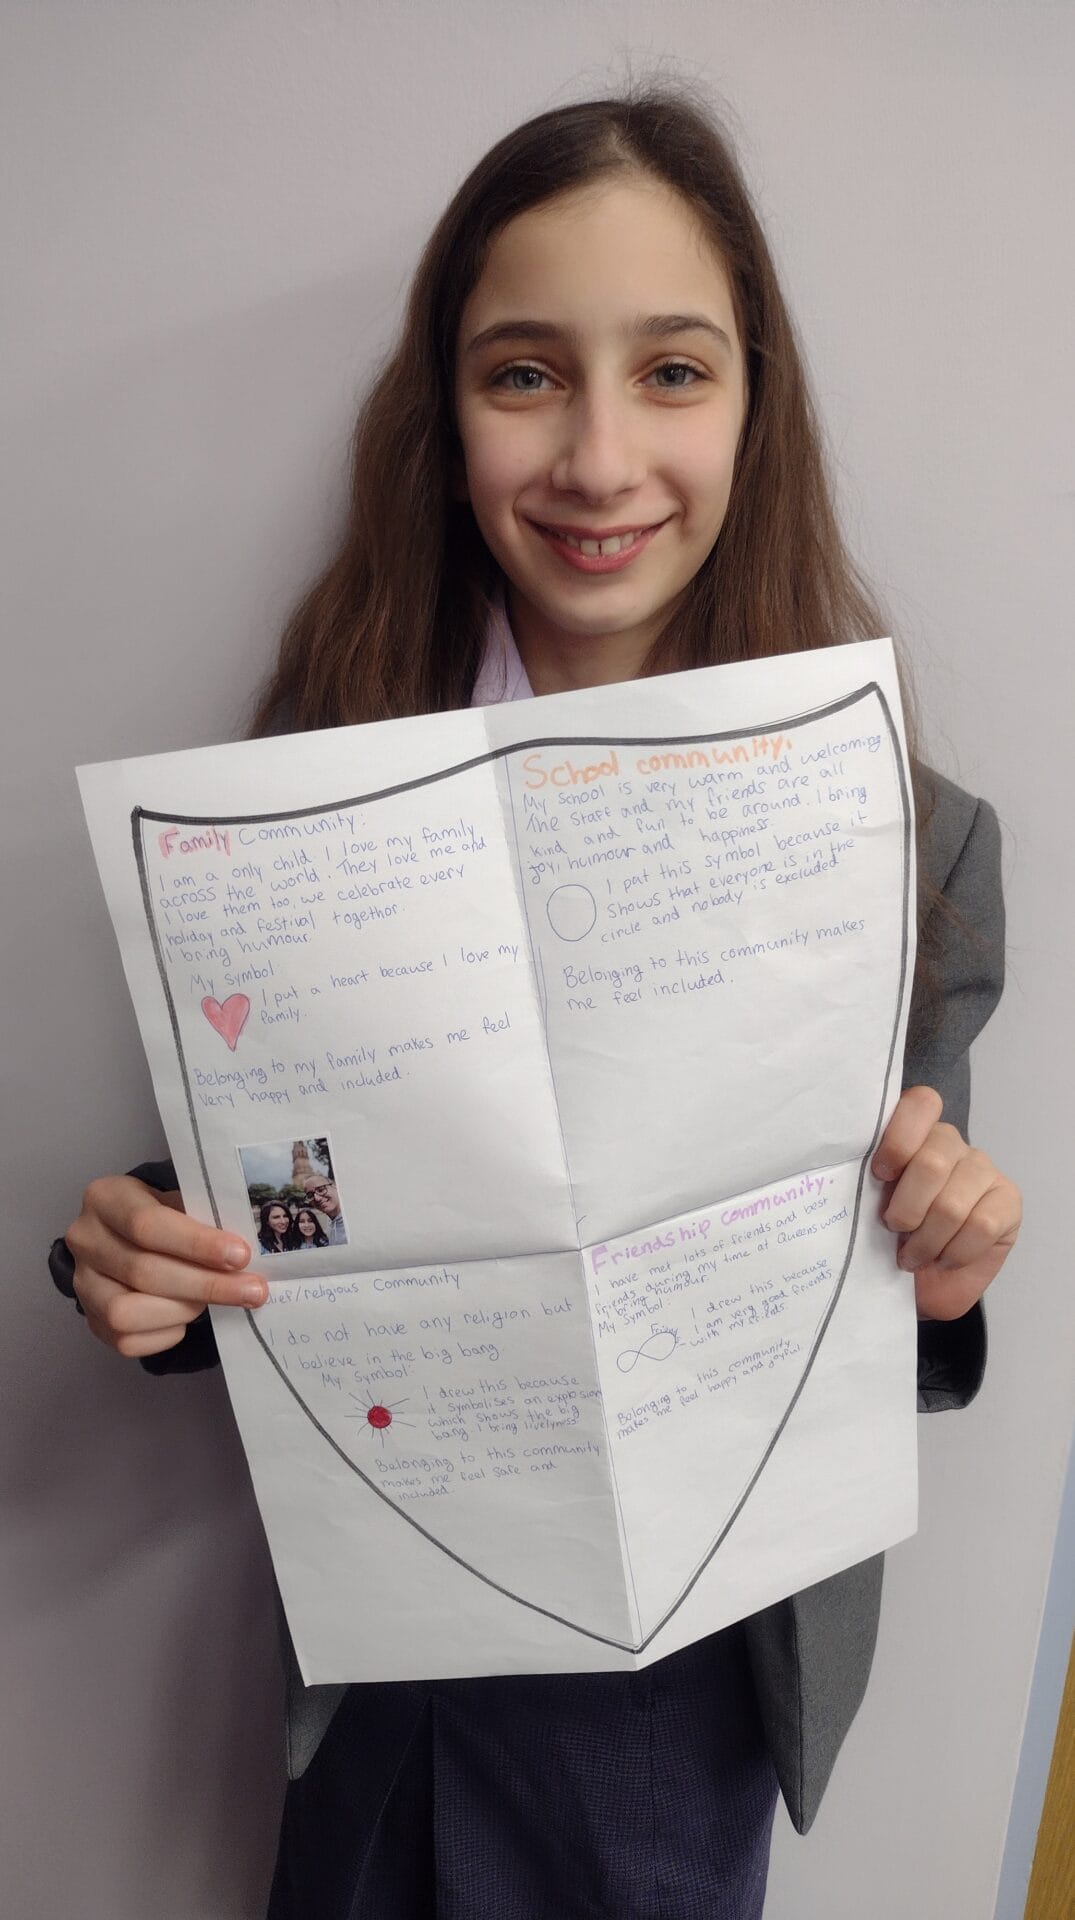 Family Community:
I am a only child. I love my family
across the world. They love me and
I love them too, we celebrate every
holiday and festival togethor.
I bring humour.
My Symbol:
I put a heart because I love my
family.
Belonging to my family makes me feel
very happy and included.
School community.
My School is very warm and welcoming.
The staff and my friends are all
kind and fun to be around. I bring
joy, humour and happiness.
I put this symbol because it
shows that everyone is in the
circle and nobody is excluded.
Belonging to this community makes
me feel included.
lief/religious Community
I do not have any religion but
I believe in the big bang.
My Symbol:
I drew this because
it symbolises an explosion
which shows the big
bang. I bring livelyness.
Belonging to this community
makes me feel safe and
included.
Friendship community.
I have met lots of friends and best
friends during my time at Queenswood
I bring humour.
My Symbol:
I drew this because
I am very good friends
with my friends.
Belonging to this community
makes me feel happy and joyful.